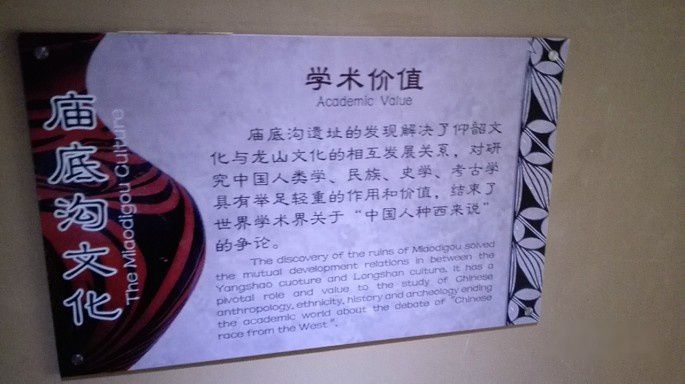 庙底沟文化
The Miaodigou Culture
学术价值
Academic Value
庙底沟遗址的发现解决了仰韶文
化与龙山文化的相互发展关系，对研
究中国人类学、民族、史学、考古学
具有举足轻重的作用和价值，结束了
世界学术界关于“中国人种西来说”
的争论。
The discovery of the ruins of Miaodigou solved
the mutual development relations in between the
Yangshao cuoture and Longshan culture. It has a
pivotal role and value to the study of Chinese
anthropology, ethnicity, history and archeology ending
the academic world about the debate of "Chinese
race from the West".